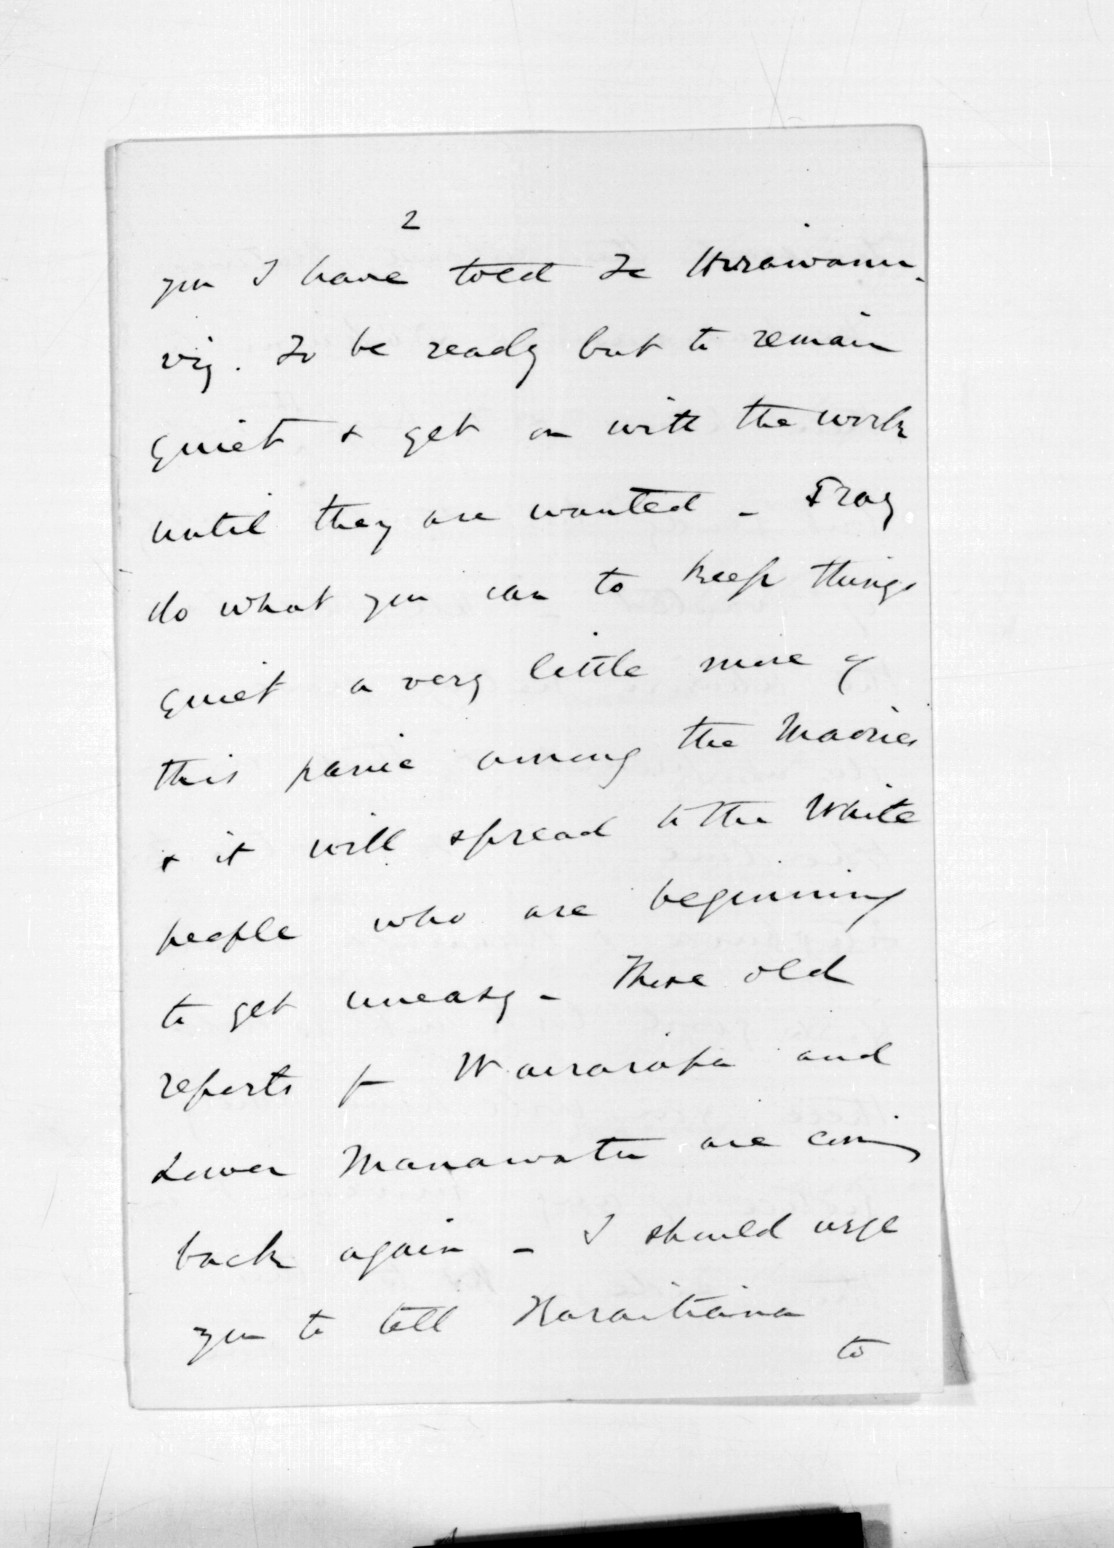 2
you I have told Te Hirawanu.
viz. To be ready but to remain
quiet & get on with the work
until they are wanted - Pray
do what you can to keep things
quiet a very little more of
this panic among the Maories
& it will spread to the White
people who are beginning
to get uneasy - These old
reports fm Wairarapa and
Lower Manawatu are coming
back again - I should urge
you to tell Karaitiana
to